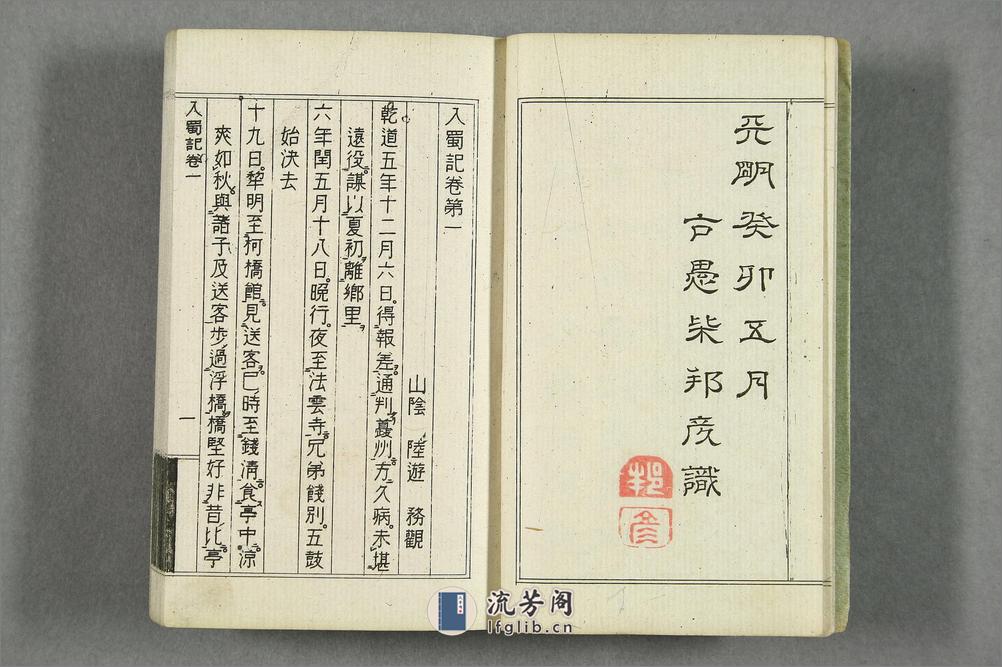 天明癸卯五月
古愚柴邦彦識
邦
彦
入蜀記卷第一
山陰 陸遊 務觀
乾道五年十二月六日得報差通判夔州方久病未堪
遠役謀以夏初離鄉里
六年閏五月十八日晚行夜至法雲寺兄弟餞別五鼓
始決去
十九日犂明至柯橋館見送客巳時至錢清食亭中涼
爽如秋與諸子及送客步過浮橋橋堅好非昔比亭
入蜀記卷一
一
流芳阁
lfglib.cn